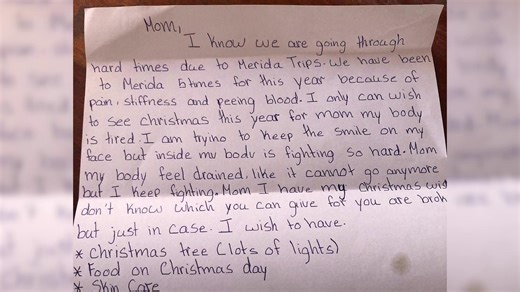 Mom,
I know we are going through
hard times due to Merida Trips. We have been
to Merida 5 times for this year because of
pain, stiffness and peeing blood. I only can wish
to see christmas this year for mom my body
is tired. I am trying to keep the smile on my
face but inside my body is fighting so hard. Mom
my body feel drained, like it cannot go anymore
but I keep fighting. Mom I have my Christmas wis
don't know which you can give for you are brok
but just in case. I wish to have.
* Christmas tree (lots of lights)
* Food on Christmas day
* Skin Care